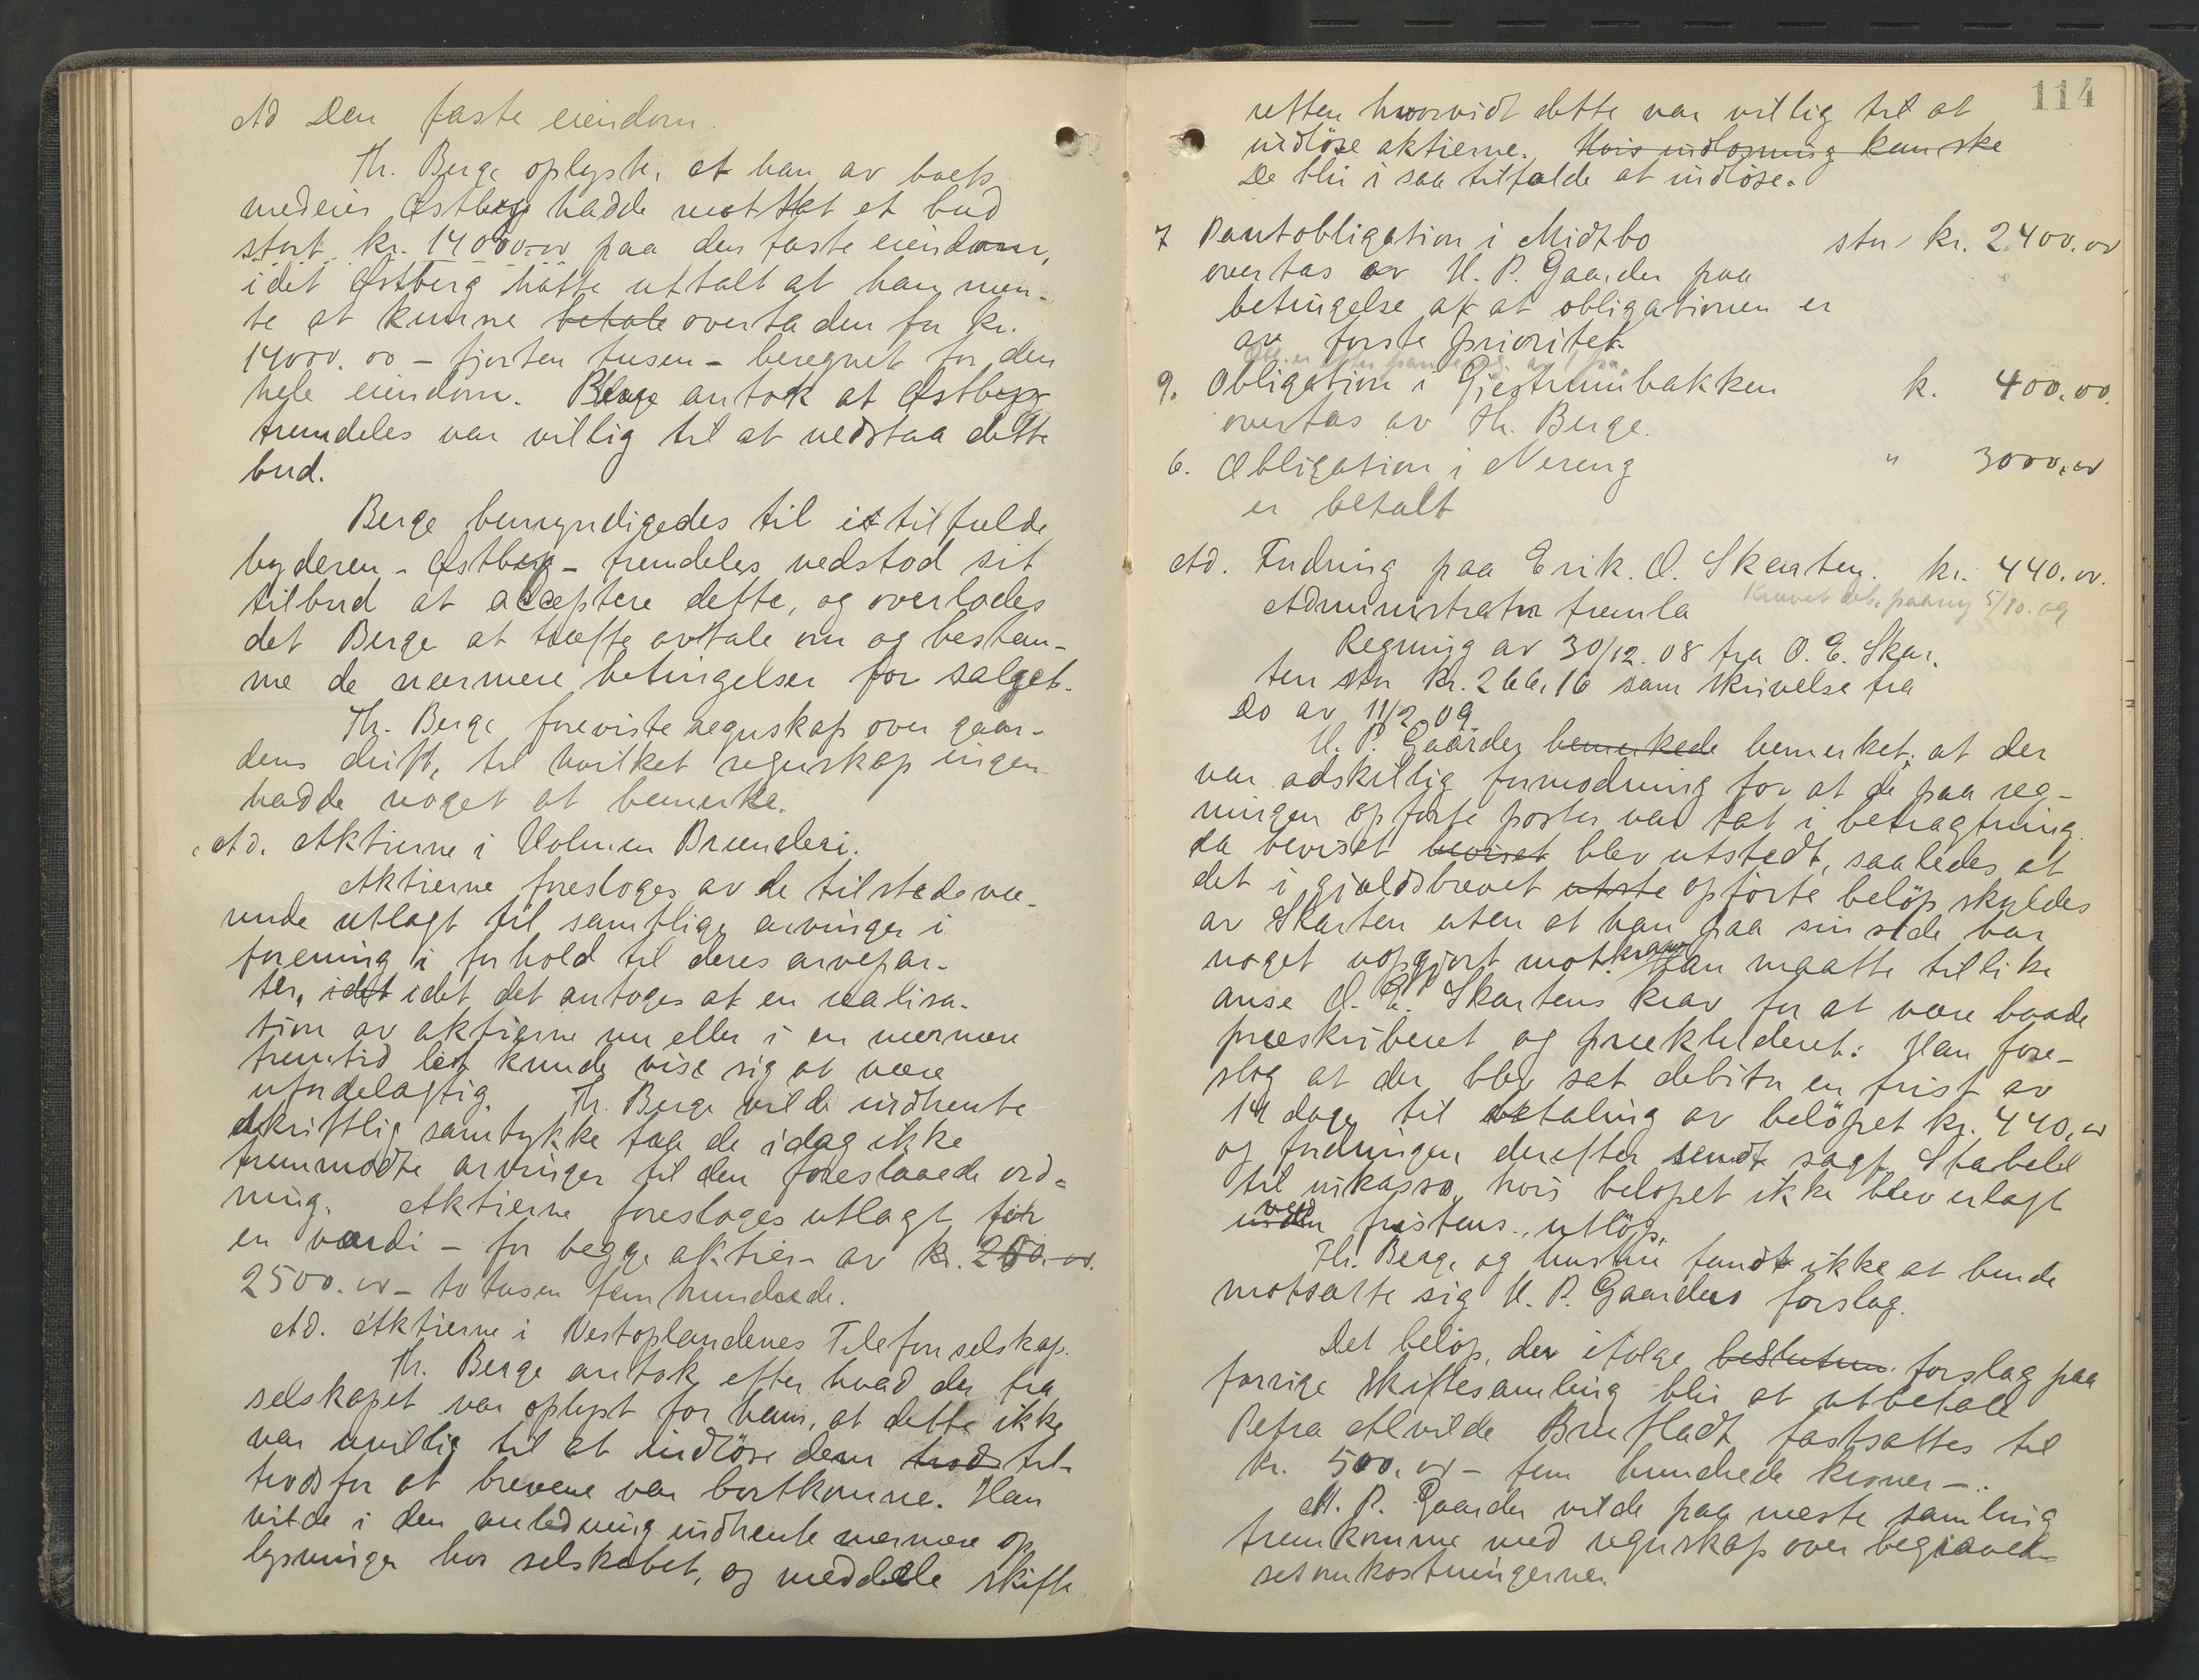 Ad Den faste eiendom.
Th. Berge oplyste, at han av boets
medeier Østberg hadde mottat et bud
stort kr. 14000.00 paa den faste eiendom,
idet Østberg hatte uttalt at han men-
te at kunne betale overta den for kr.
14000.00 - fjorten tusen - beregnet for den
hele eiendom. Berge antok at Østberg
fremdeles var villig til at vedstaa dette
bud.
Berge bemyndigedes til i tilfælde
byderen - Østberg - fremdeles vedstod sit
tilbud at acceptere dette, og overlodes
det Berge at træffe avtale om og bestem-
me de nærmere betingelser for salget.
Th. Berge foreviste regnskap over gaar-
dens drift, til hvilket regnskap ingen
hadde noget at bemerke.
Ad. Aktierne i Holmen Brænderi.
Aktierne foresloges av de tilstedevæ-
rende utlagt til samtlige arvinger i
forening i forhold til deres arvepar-
ter, idet idet det antoges at en realisa-
tion av aktierne nu eller i en nærmere
fremtid let kunde vise sig at være
ufordelagtig. Th. Berge vilde indhente
skriftlig samtykke fra de idag ikke
fremmødte arvinger til den foreslaaede ord-
ning. Aktierne foresloges utlagt for
en værdi - for begge aktier - av kr. 200.00
2500.00 - to tusen fem hundrede.
Ad. Aktierne i Vestoplandenes Telefonselskap.
Th. Berge antok efter hvad der fra
selskapet var oplyst for ham, at dette ikke
var uvillig til at indløse dem trods til-
trods for at brevene var bortkomne. Han
vilde i den anledning indhente nærmere op
lysninger hos selskabet, og meddele skifte
114
retten hvorvidt dette var villig til at
indløse aktierne. Hvis indløsning kan ske
De blir i saa tilfælde at indløse.
7 Pantobligation i Midtbo stor kr. 2400.00
overtas av H. P. Gaarder paa
betingelse af at obligationen er
av første prioritet.
9. Obligation i Gjestrumbakken k. 400.00.
overtas av Th. Berge.
6. Obligation i Nereng " 3000.00
er betalt
Ad. Fordring paa Erik. O. Skarten. kr. 440.00.
Administrator fremla
Regning av 30/12. 08 fra O. E. Skar,
ten stor kr. 266,16 sam skrivelse fra
Do av 11/2 09
H. P. Gaarder bemerkede bemerket, at der
var adskillig formodning for at de paa reg-
ningen opførte poster var tat i betragtning
da beviset beviset blev utstedt, saaledes at
det i gjældsbrevet utste opførte beløp skyldes
av Skarten uten at han paa sin side har
noget uopgjort mot krav. Han maatte tillike
anse O. E. Skartens krav for at være baade
præskriberet og prækluderet. Han fore-
slog at der blev sat debitor en frist av
14 dage til betaling av beløpet kr. 440,00
og fordringen derefter sendt sagf. Stabell
til inkasso, hvis beløpet ikke blev erlagt
inden ved fristens utløp.
Th. Berge og hustru fandt ikke at burde
motsætte sig H. P. Gaarders forslag.
Det beløp, der ifølge beslutnin forslag paa
forrige skiftesamling blir at utbetale
Petra Alvilde Brufladt fastsattes til
kr. 500.00 - fem hundrede kroner -.
H. P. Gaarder vilde paa næste samling
fremkomme med regnskap over begravel-
sesomkostningerne.